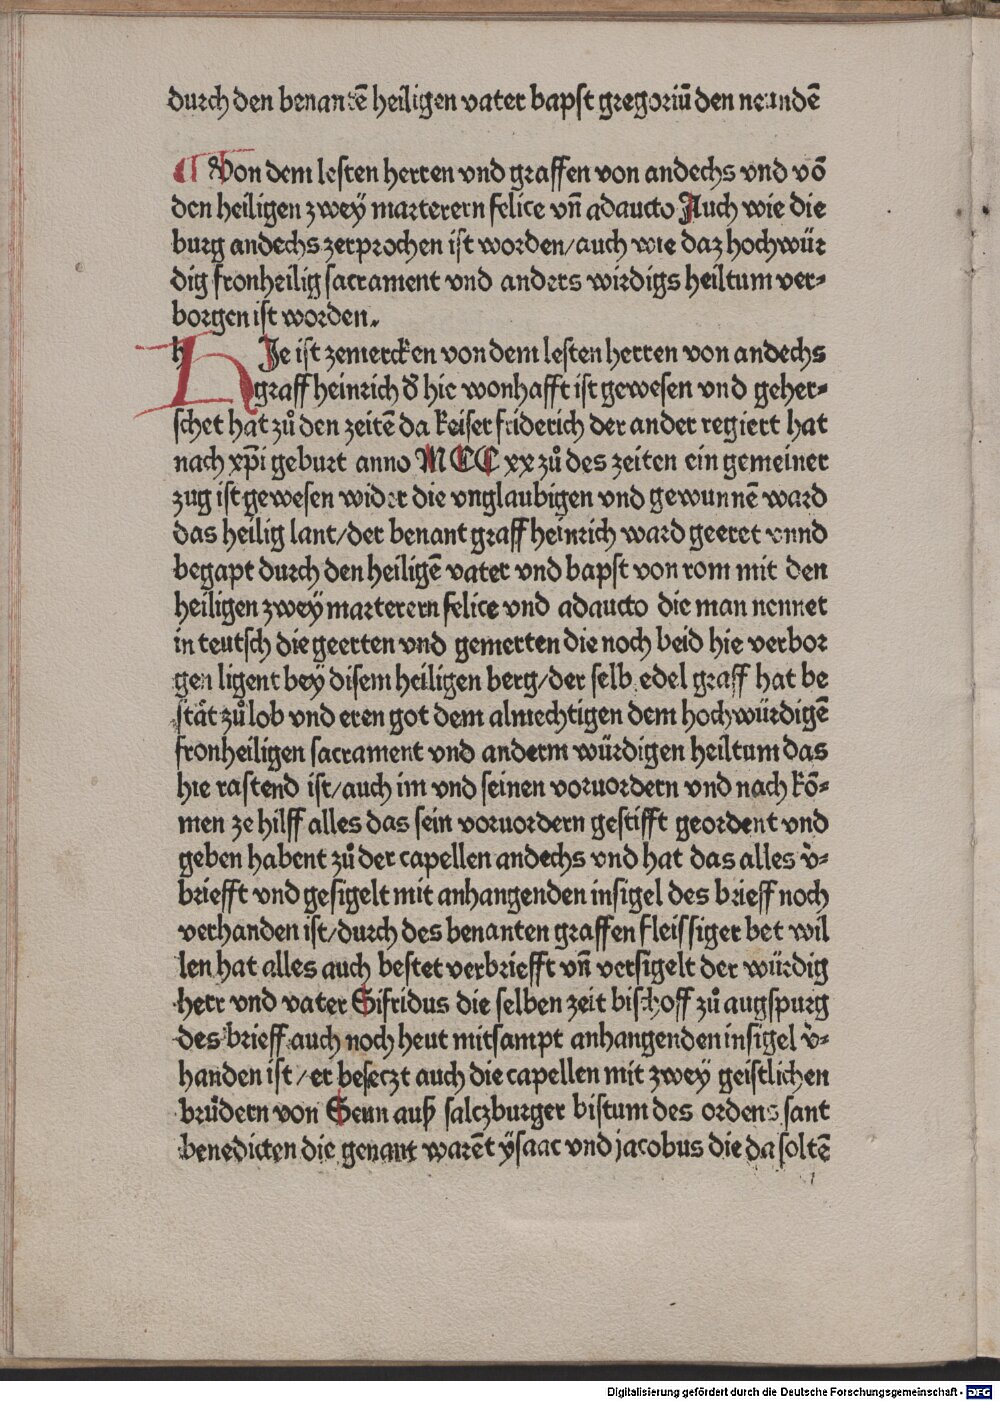 durch den benantē heiligen vater bapst gregoriū den neundē
¶ Von dem lesten herren vnd graffen von andechs vnd vō
den heiligen zwey marterern felice vn̄ adaucto Auch wie die
burg andechs zerprochen ist worden/auch wie daz hochwür
dig fronheilig sacrament vnd anders wirdigs heiltum ver⸗
borgen ist worden.
HJe ist zemercken von dem lesten herren von andechs
graff heinrich d̕ hie wonhafft ist gewesen vnd geher⸗
schet hat zů den zeitē da keiser friderich der ander regiert hat
nach xp̄i geburt anno MCC xx zů des zeiten ein gemeiner
zug ist gewesen wider die vnglaubigen vnd gewunnē ward
das heilig lant/der benant graff heinrich ward geeret vnnd
begapt durch den heiligē vater vnd bapst von rom mit den
heiligen zwey marterern felice vnd adaucto die man nennet
in teutsch die geerten vnd gemerten die noch beid hie verbor
gen ligent bey disem heiligen berg/der selb edel graff hat be
stät zů lob vnd eren got dem almechtigen dem hochwürdigē
fronheiligen sacrament vnd anderm würdigen heiltum das
hie rastend ist/auch im vnd seinen voruordern vnd nach kō⸗
men ze hilff alles das sein voruordern gestifft geordent vnd
geben habent zů der capellen andechs vnd hat das alles v̕⸗
briefft vnd gesigelt mit anhangenden insigel des brieff noch
verhanden ist/durch des benanten graffen fleissiger bet wil
len hat alles auch bestet verbriefft vn̄ versigelt der würdig
herr vnd vater Sifridus die selben zeit bischoff zů augspurg
des brieff auch noch heut mitsampt anhangenden insigel v̕⸗
handen ist/er beseczt auch die capellen mit zwey geistlichen
brůdern von Seun auß salczburger bistum des ordens sant
benedicten die genant warēt ysaac vnd jacobus die da soltē
Digitalisierung gefördert durch die Deutsche Forschungsgemeinschaft - DFG